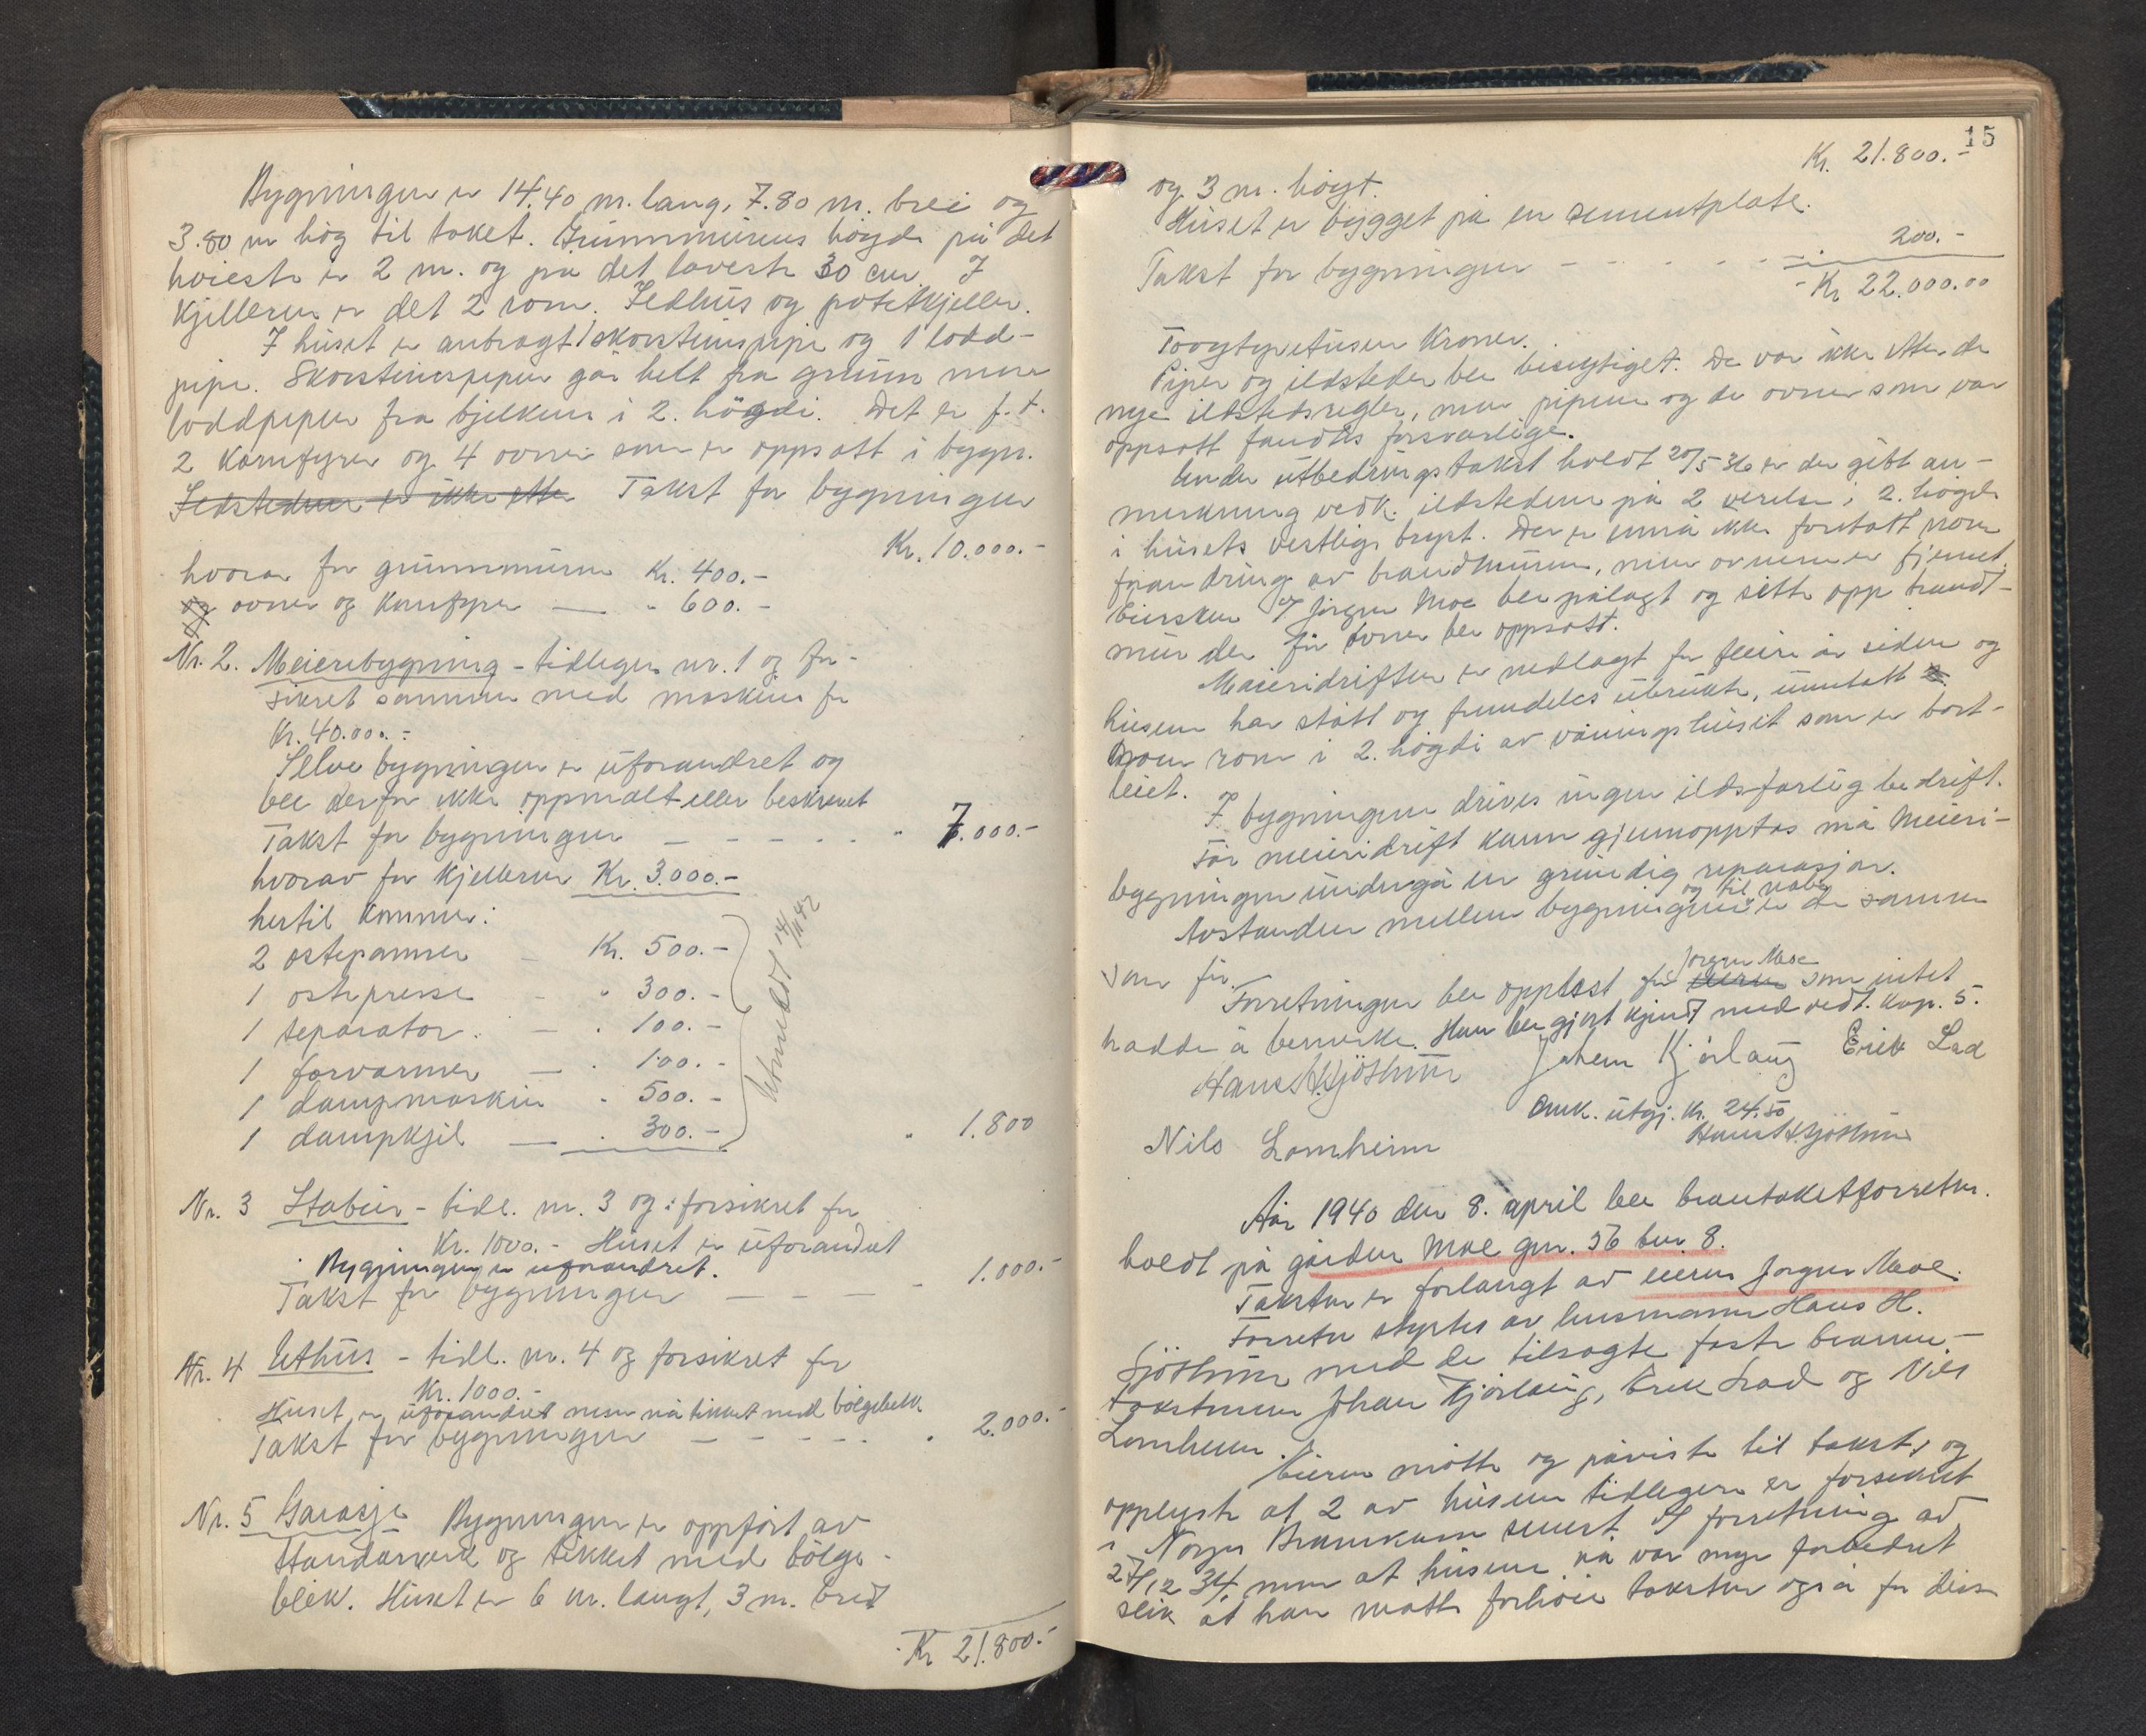 Bygningen er 14.40 m. lang, 7.80 m. brei og
3.80 m høg til taket. Grunnmurens høgde på det
høieste er 2 m. og på det laveste 30 cm. I
kjelleren er det 2 rom. Ildhus og potetkjeller.
I huset er anbragt 1 skorsteinspipe og 1 lodd-
pipe. Skorsteinspipen går helt fra grunn men
loddpipen fra bjelken i 2. høgdi. Det er f.t.
2 komfyrer og 4 ovner som er oppsatt i bygn.
Ildstedene er ikke etter Takst for bygningen
Kr. 10.000.-
hvorav for grunnmuren Kr. 400.-
og ovner og komfyrer — " 600.-
Nr. 2. Meieribygning - tidligere nr. 1 og for-
sikret sammen med maskiner for
Kr. 40.000.-
Selve bygningen er uforandret og
ble derfor ikke oppmålt eller beskrevet
Takst for bygningen - - - - - " 7.000.-
hvorav for kjelleren Kr. 3.000.-
hertil kommer:
2 ostepanner - Kr. 500.-
1 ostepresse - " 300.-
1 separator - " 100.-
1 forvarmer - " 100.-
1 dampmaskin " 500.-
1 dampkjel - " 300.- " 1.800
Utmeldt
Nr. 3 Stabur - tidl. nr. 3 og forsikret for
Kr. 1000.- Huset er uforandret
Bygningen er uforandret.
Takst for bygningen - - - - - 1.000.-
Nr. 4 Uthus - tidl. nr. 4 og forsikret for
Kr. 1000.-
Huset er uforandret men nå tekket med bølgeblekk.
Takst for bygningen - - - - - " 2.000.-
Nr. 5 Garasje Bygningen er oppført av
standarverk og tekket med bølge-
blikk. Huset er 6 m. langt, 3 m. bredt
Kr 21.800.-
15
Kr. 21.800.-
og 3 m. høgt.
Huset er bygget på en sementplate.
Takst for bygningen - - - - - 200.-
Kr 22.000.00
Toogtyvetusen Kroner.
Piper og ildsteder ble besiktiget. De var ikke etter de
nye ildstedsregler, men pipene og de ovner som var
oppsatt fandtes forsvarlige.
Under utbedringstakst holdt 20/5 36 er der gitt an-
merkning vedk. ildstedene på 2 værelser i 2. høgde
i husets vestlige bryst. Der er ennå ikke foretatt noen
forandring av brandmuren, men ovnene er fjernet.
Eiersken v/ Jørgen Moe ble pålagt og sette opp brandt-
mur der før ovner ble oppsatt.
Meieridriften er nedlagt for flere år siden og
husene har stått og fremdeles ubrukte, unntatt
noen rom i 2. høgdi av våningshuset som er bort-
leiet.
I bygningene drives ingen ildsfarlig bedrift.
Før meieridrift kann gjennopptas må Meieri-
bygningen undergå en grundig reparasjon.
og til nabo
Avstanden mellem bygningene er de samme
som før.
Jørgen Moe
Forretningen ble opplest for eieren som intet
hadde å bemerke. Han ble gjort kjendt med vedt. kap. 5.
Hans H. Sjøthun Johan Kjørlaug Erik Lad
Omk. utgj. Kr. 24.50
Hans H. Sjøthun
Nils Lomheim
År 1940 den 8. april ble branntakstforretn.
holdt på gården Moe gnr. 56 bnr. 8.
Taksten er forlangt av eieren Jørgen Moe.
Forretn styrtes av lensmann Hans H.
Sjøthun med de tilsagte faste brann-
takstmenn Johan Kjørlaug, Erik Lad og Nils
Lomheim.
Eieren møtte og påviste til takst, og
opplyste at 2 av husene tidligere er forsikret
i Norges Brannkasse senest i forretning av
27/12 34 men at husene nå var mye forbedret
slik at han måtte forhøie taksten også for disse